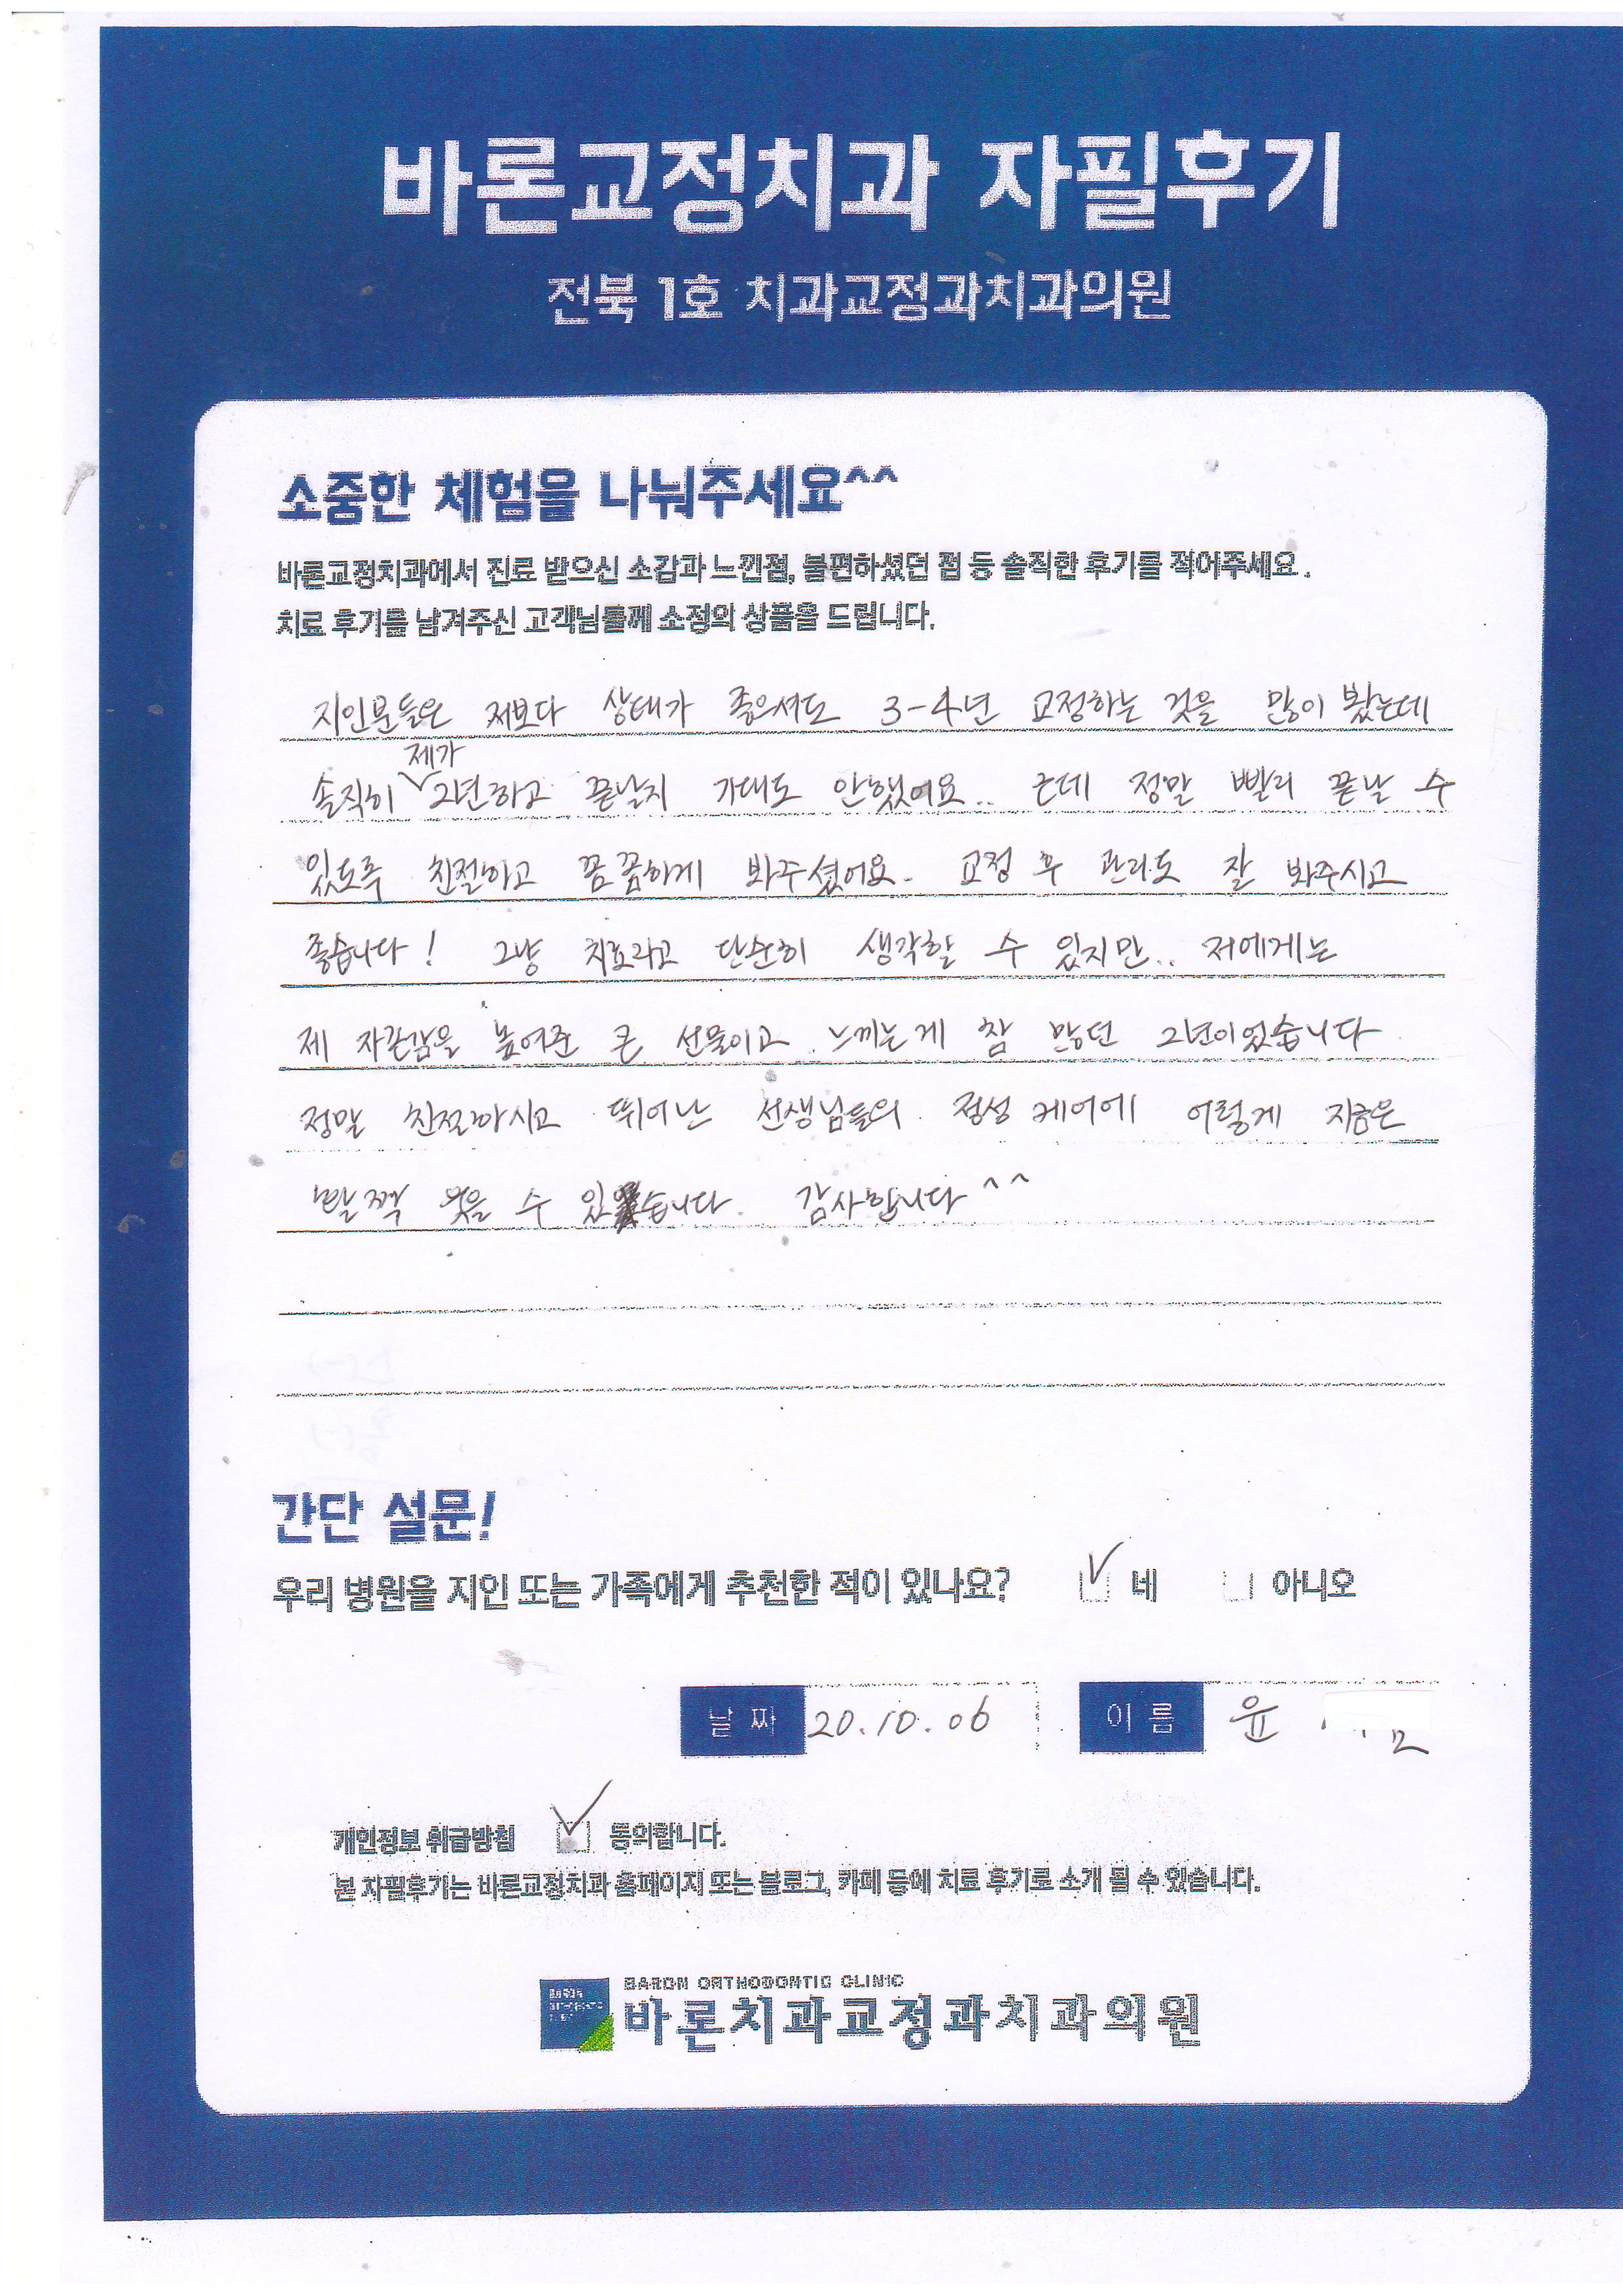 바론교정치과 자필후기
전북 1호 치과교정과치과의원
소중한 체험을 나눠주세요^^
바론교정치과에서 진료 받으신 소감과 느낀점, 불편하셨던 점 등 솔직한 후기를 적어주세요.
치료 후기를 남겨주신 고객님들께 소정의 상품을 드립니다.
지인분들은 저보다 상태가 좋으셔도 3-4년 교정하는 것을 많이 봤는데
솔직히 제가 2년하고 끝날지 기대도 안했어요.. 근데 정말 빨리 끝날 수
있도록 친절하고 꼼꼼하게 봐주셨어요. 교정 후 관리도 잘 봐주시고
좋습니다! 그냥 치료라고 단순히 생각할 수 있지만.. 저에게는
제 자존감을 높여준 큰 선물이고 느끼는게 참 많던 2년이었습니다
정말 친절하시고 뛰어난 선생님들의 정성 케어에 이렇게 지금은
활짝 웃을 수 있습니다. 감사합니다^^
간단 설문!
우리 병원을 지인 또는 가족에게 추천한 적이 있나요? 네 아니오
날짜 20.10.06 이름 윤
개인정보 취급방침 동의합니다.
본 자필후기는 바론교정치과 홈페이지 또는 블로그, 카페 등에 치료 후기로 소개 될 수 있습니다.
BARON ORTHODONTIC CLINIC
바론치과교정과치과의원